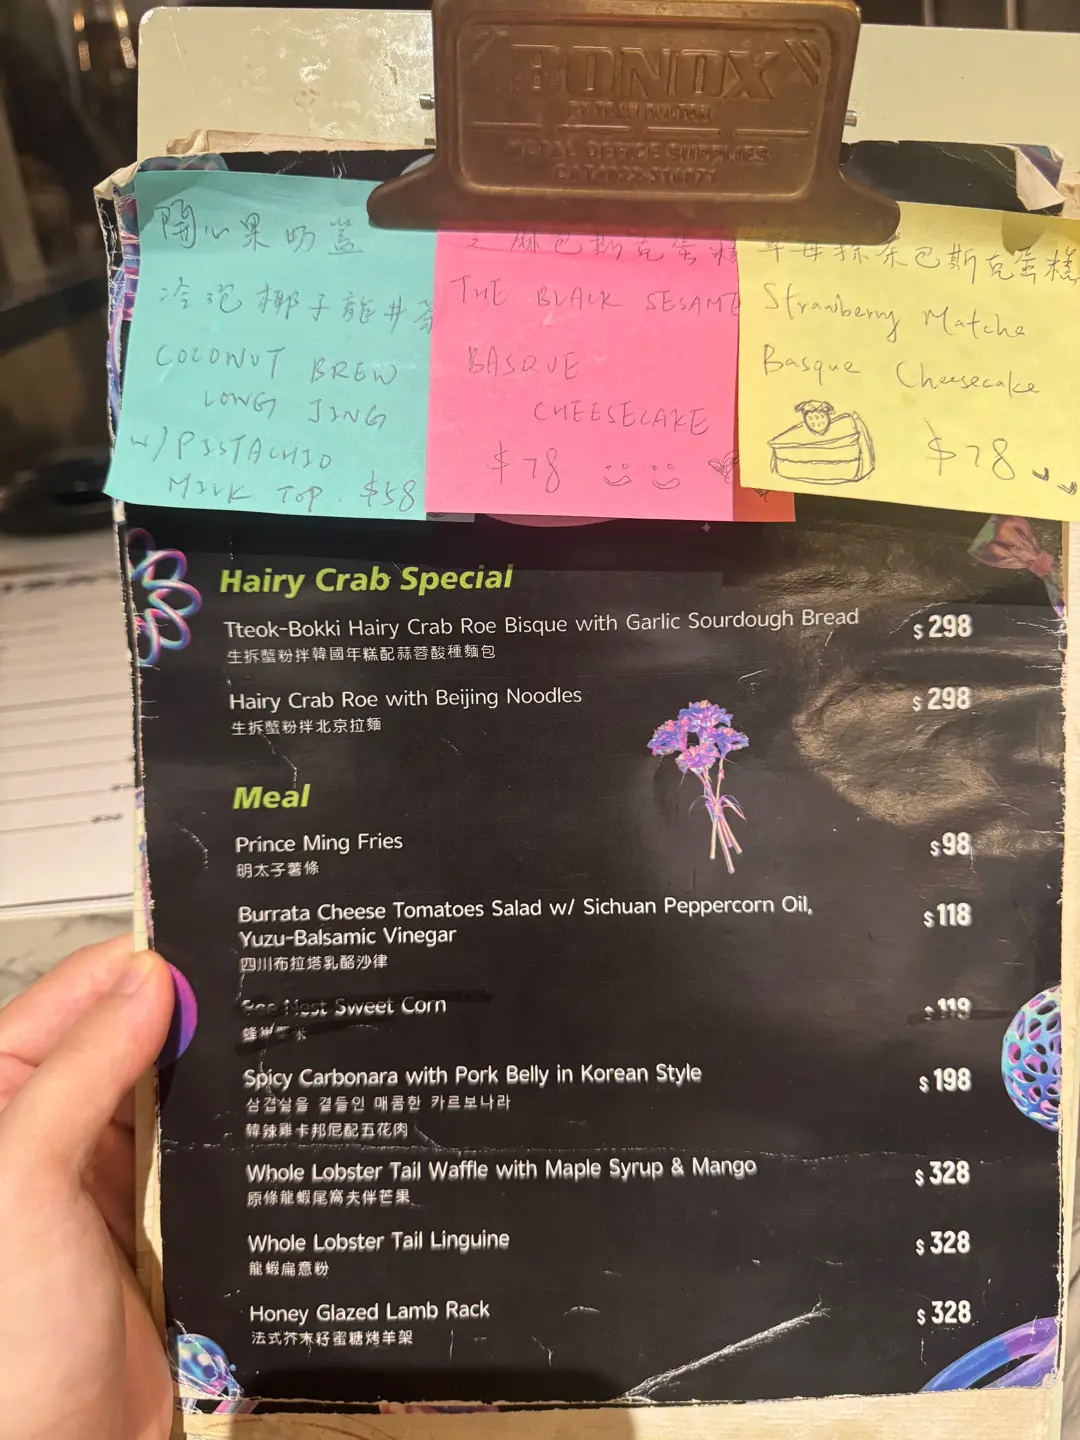 BONOX
METAL OFFICE SUPPLIES
開心果奶蓋
冷泡椰子龍井茶
COCONUT BREW
LONG JING
W/ PISTACHIO
MILK TOP. $58
芝麻巴斯克蛋糕
THE BLACK SESAME
BASQUE
CHEESECAKE
$78
草莓抹茶巴斯克蛋糕
Strawberry Matcha
Basque Cheesecake
$78
Hairy Crab Special
Tteok-Bokki Hairy Crab Roe Bisque with Garlic Sourdough Bread $298
生拆蟹粉拌韓國年糕配蒜蓉酸種麵包
Hairy Crab Roe with Beijing Noodles $298
生拆蟹粉拌北京拉麵
Meal
Prince Ming Fries $98
明太子薯條
Burrata Cheese Tomatoes Salad w/ Sichuan Peppercorn Oil,
Yuzu-Balsamic Vinegar $118
四川布拉塔乳酪沙律
Nest Sweet Corn $119
Spicy Carbonara with Pork Belly in Korean Style $198
삼겹살을 곁들인 매콤한 카르보나라
韓辣雞卡邦尼配五花肉
Whole Lobster Tail Waffle with Maple Syrup & Mango $328
原條龍蝦尾窩夫伴芒果
Whole Lobster Tail Linguine $328
龍蝦扁意粉
Honey Glazed Lamb Rack $328
法式芥末籽蜜糖烤羊架